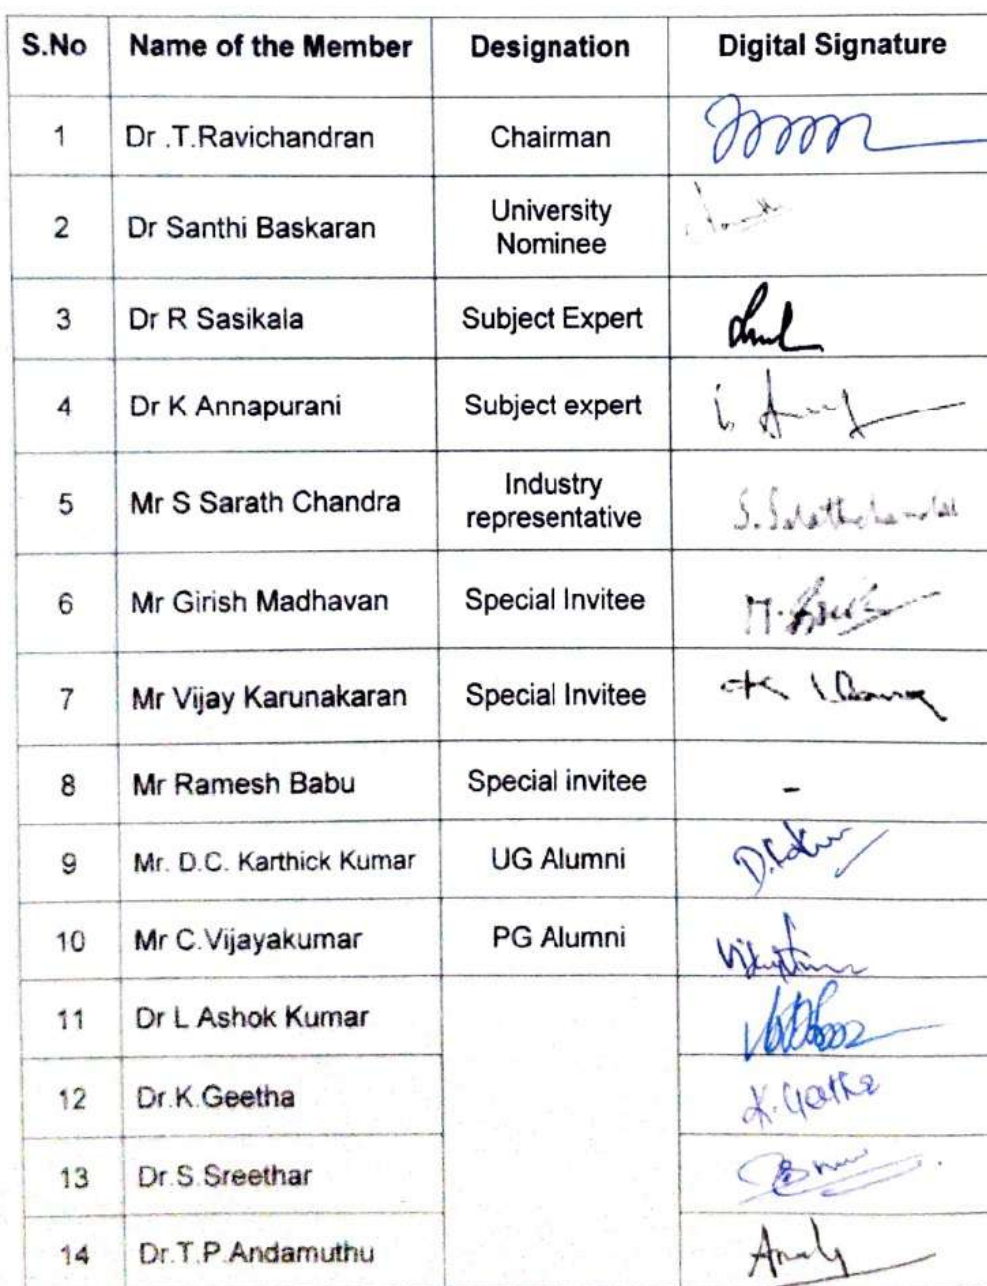 S.No Name of the Member Designation Digital Signature
1 Dr .T.Ravichandran Chairman
2 Dr Santhi Baskaran University Nominee
3 Dr R Sasikala Subject Expert
4 Dr K Annapurani Subject expert
5 Mr S Sarath Chandra Industry representative S. Sarathchandra
6 Mr Girish Madhavan Special Invitee
7 Mr Vijay Karunakaran Special Invitee
8 Mr Ramesh Babu Special invitee -
9 Mr. D.C. Karthick Kumar UG Alumni
10 Mr C.Vijayakumar PG Alumni
11 Dr L Ashok Kumar
12 Dr.K.Geetha K. Geetha
13 Dr.S.Sreethar
14 Dr.T.P.Andamuthu